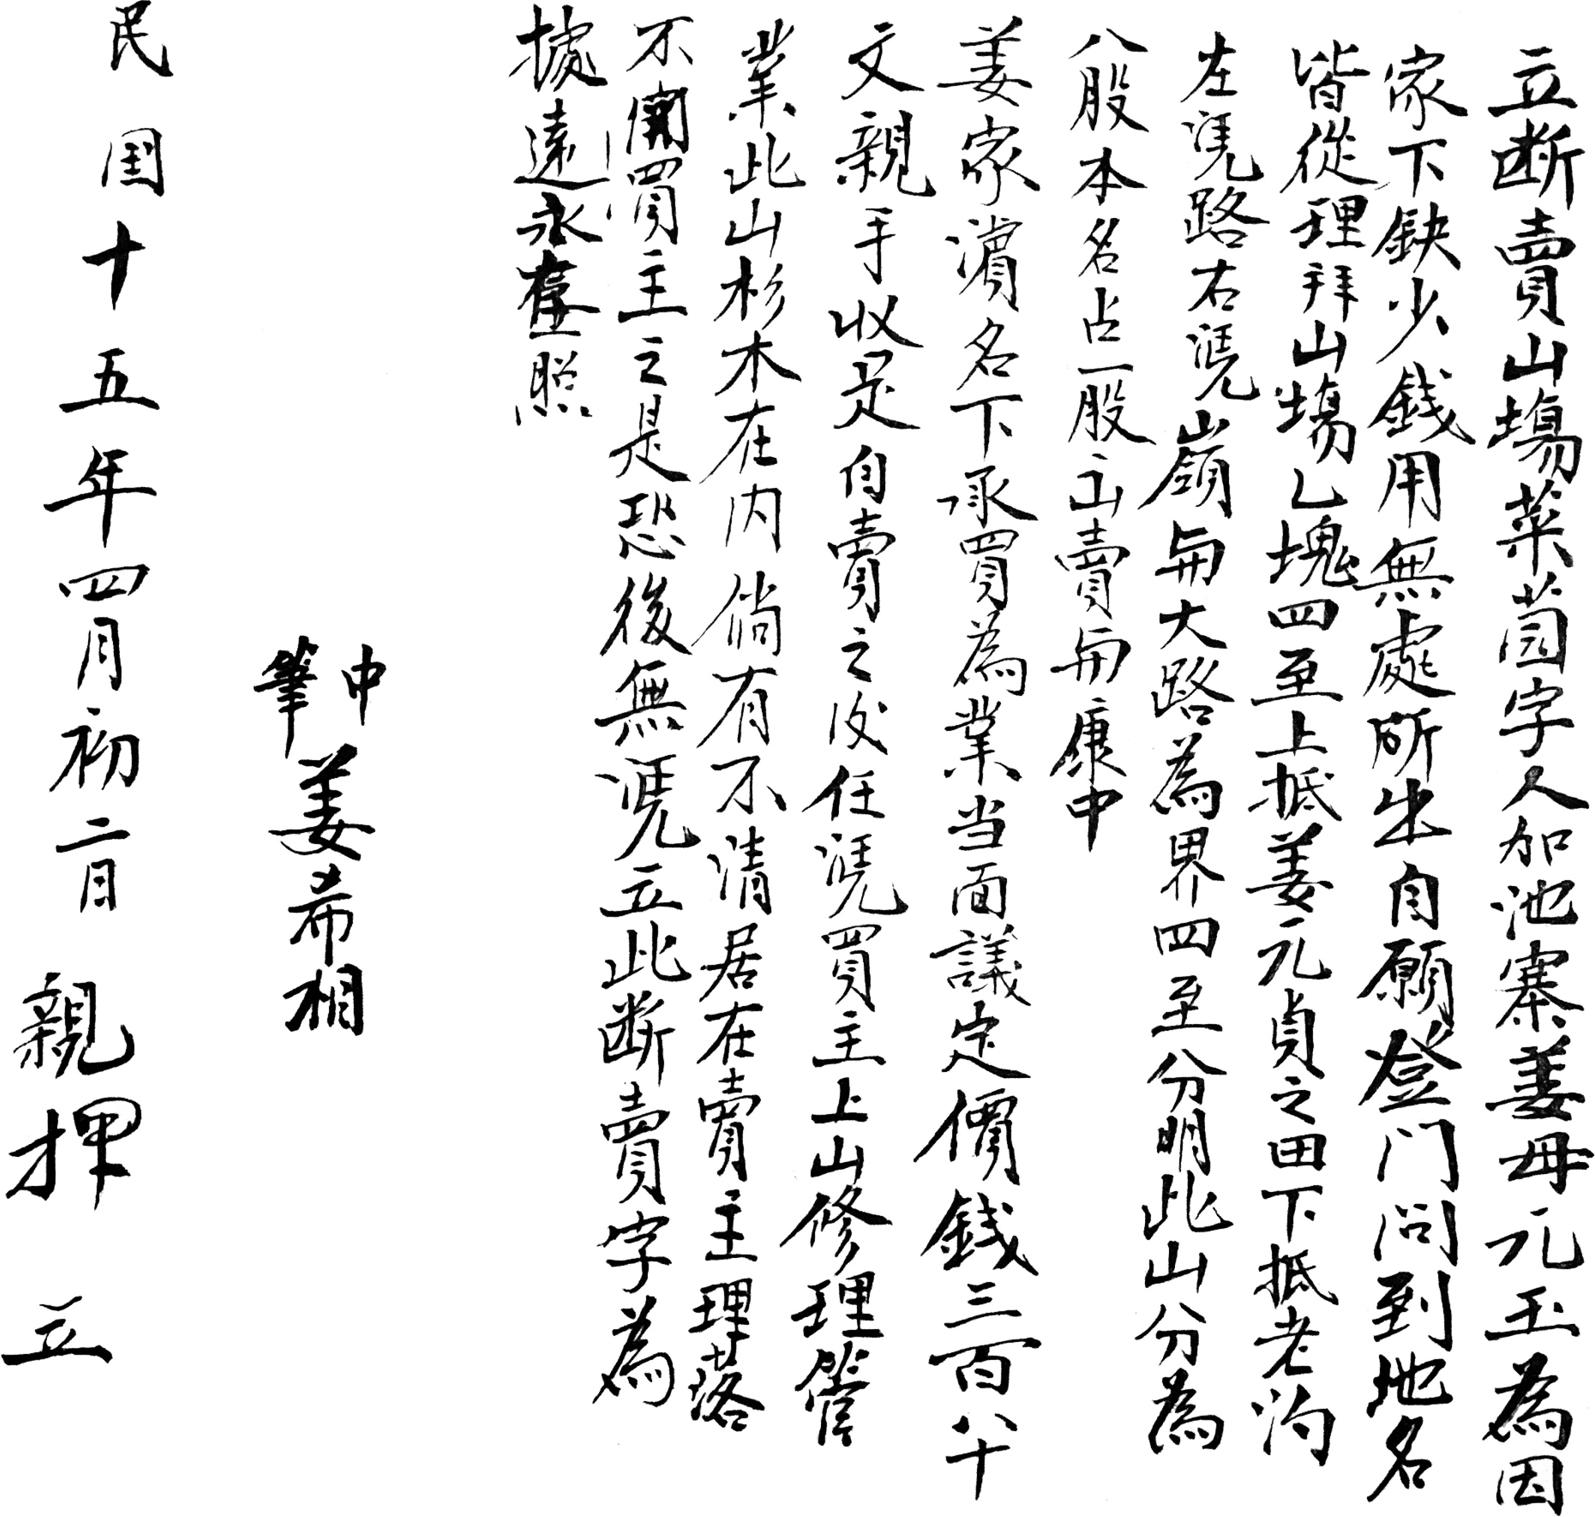 立断賣山塲菜园字人加池寨姜母元玉為因
家下缺少錢用無處所出自願登门问到地名
皆從理拜山塲乙塊四至上抵姜元貞之田下抵老沟
左凴路右凴嶺與大路為界四至分明此山分為
八股本名占一股之山賣與康中
姜家濱名下承買為業当面議定價錢三百八十
文親手收足自賣之後任凴買主上山修理管
業此山杉木在内倘有不清居在賣主理落
不関買主之是恐後無凴立此断賣字為
據遠永存照
中
筆 姜希相
民国十五年四月初二日 親押 立